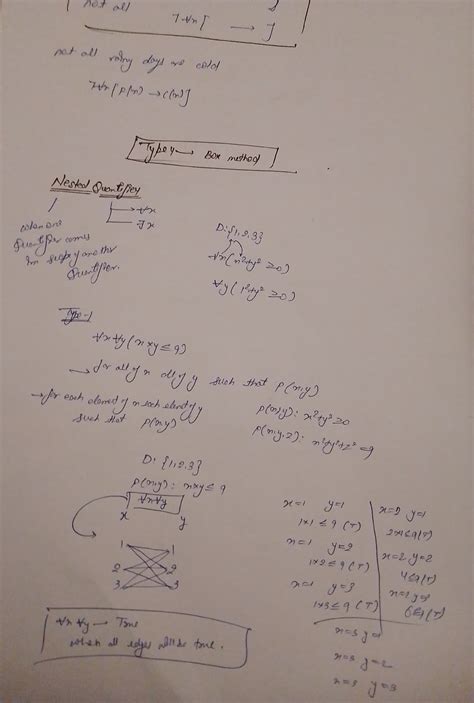 not all
¬∀x[ → ]
not all rainy days are cold
¬∀x[P(x) → C(x)]
Type 4 → Box method
Nested Quantifier
→ ∀x
→ ∃x
when one
Quantifier comes
in scope of another
Quantifier.
D: {1,2,3}
∀x(x²+y² ≥0)
∀y(1²+y² ≥0)
Type-1
∀x∀y(x×y≤9)
→ for all of x all of y such that P(x,y)
→ for each element of x each element of y
such that P(x,y)
P(x,y): x²+y²≥0
P(x,y,z): x²+y²+z² =9
D: {1,2,3}
P(x,y): x×y≤9
∀x∀y
x y
1 1
2 2
3 3
x=1 y=1
1×1 ≤9 (T)
x=1 y=2
1×2 ≤9 (T)
x=1 y=3
1×3 ≤9 (T)
x=2 y=1
2×1≤9(T)
x=2 y=2
4≤9(T)
6≤9(T)
x=3 y=1
x=3 y=2
x=3 y=3
∀x ∀y → True
when all edges will be true.